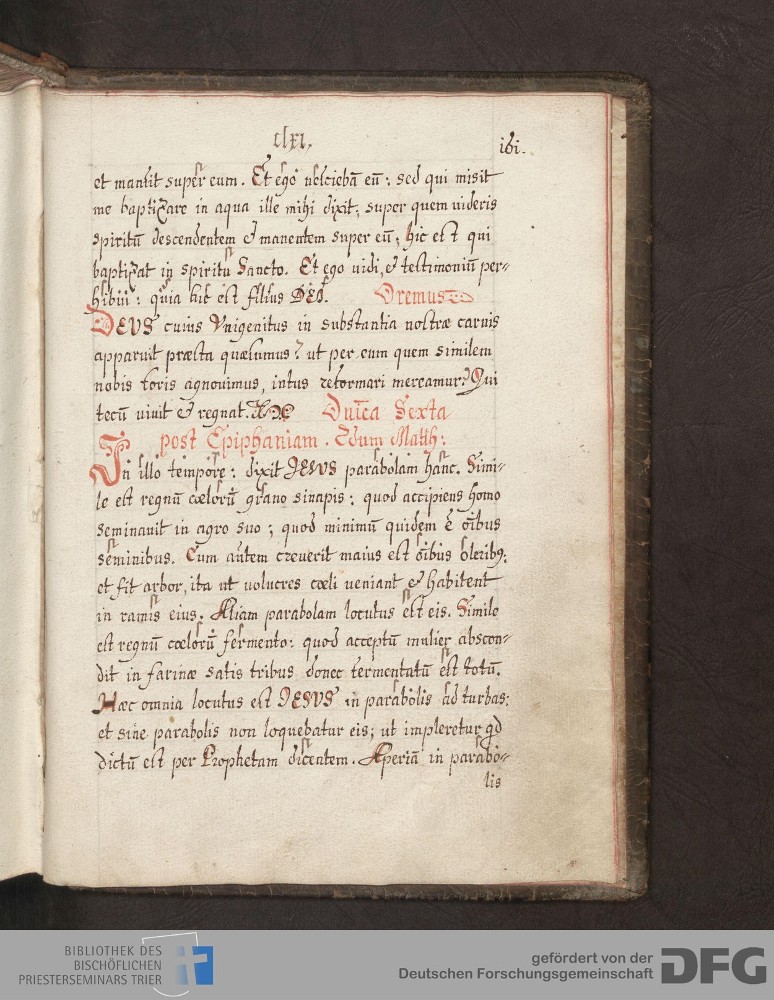 clxi.
161.
et mansit super eum. Et ego nesciebā eū: sed qui misit
me baptizare in aqua ille mihi dixit; super quem uideris
spiritū descendentem & manentem super eū, hic est qui
baptizat in spiritu Sancto. Et ego uidi, & testimoniū per-
hibui: quia hic est filius DEI. Oremus
DEVS cuius Vnigenitus in substantia nostræ carnis
apparuit præsta quæsumus? ut per eum quem similem
nobis foris agnouimus, intus reformari mereamur? Qui
tecū uiuit & regnat. Dnīca Sexta
post Epiphaniam. Scdum Matth:
In illo tempore: dixit JESVS parabolam hanc. Simi-
le est regnū cœlorū grano sinapis: quod accipiens homo
seminauit in agro suo; quod minimū quidem ē oībus
seminibus. Cum autem creuerit maius est oībus oleribꝫ:
et fit arbor, ita ut uolucres cœli ueniant & habitent
in ramis eius. Aliam parabolam locutus est eis. Simile
est regnū cœlorū fermento: quod acceptū mulier abscon-
dit in farinæ satis tribus donec fermentatū est totū.
Hæc omnia locutus est JESVS in parabolis ad turbas:
et sine parabolis non loquebatur eis; ut impleretur qd
dictū est per Prophetam dicentem. Aperiā in parabo-
lis
BIBLIOTHEK DES
BISCHÖFLICHEN
PRIESTERSEMINARS TRIER
gefördert von der
Deutschen Forschungsgemeinschaft DFG